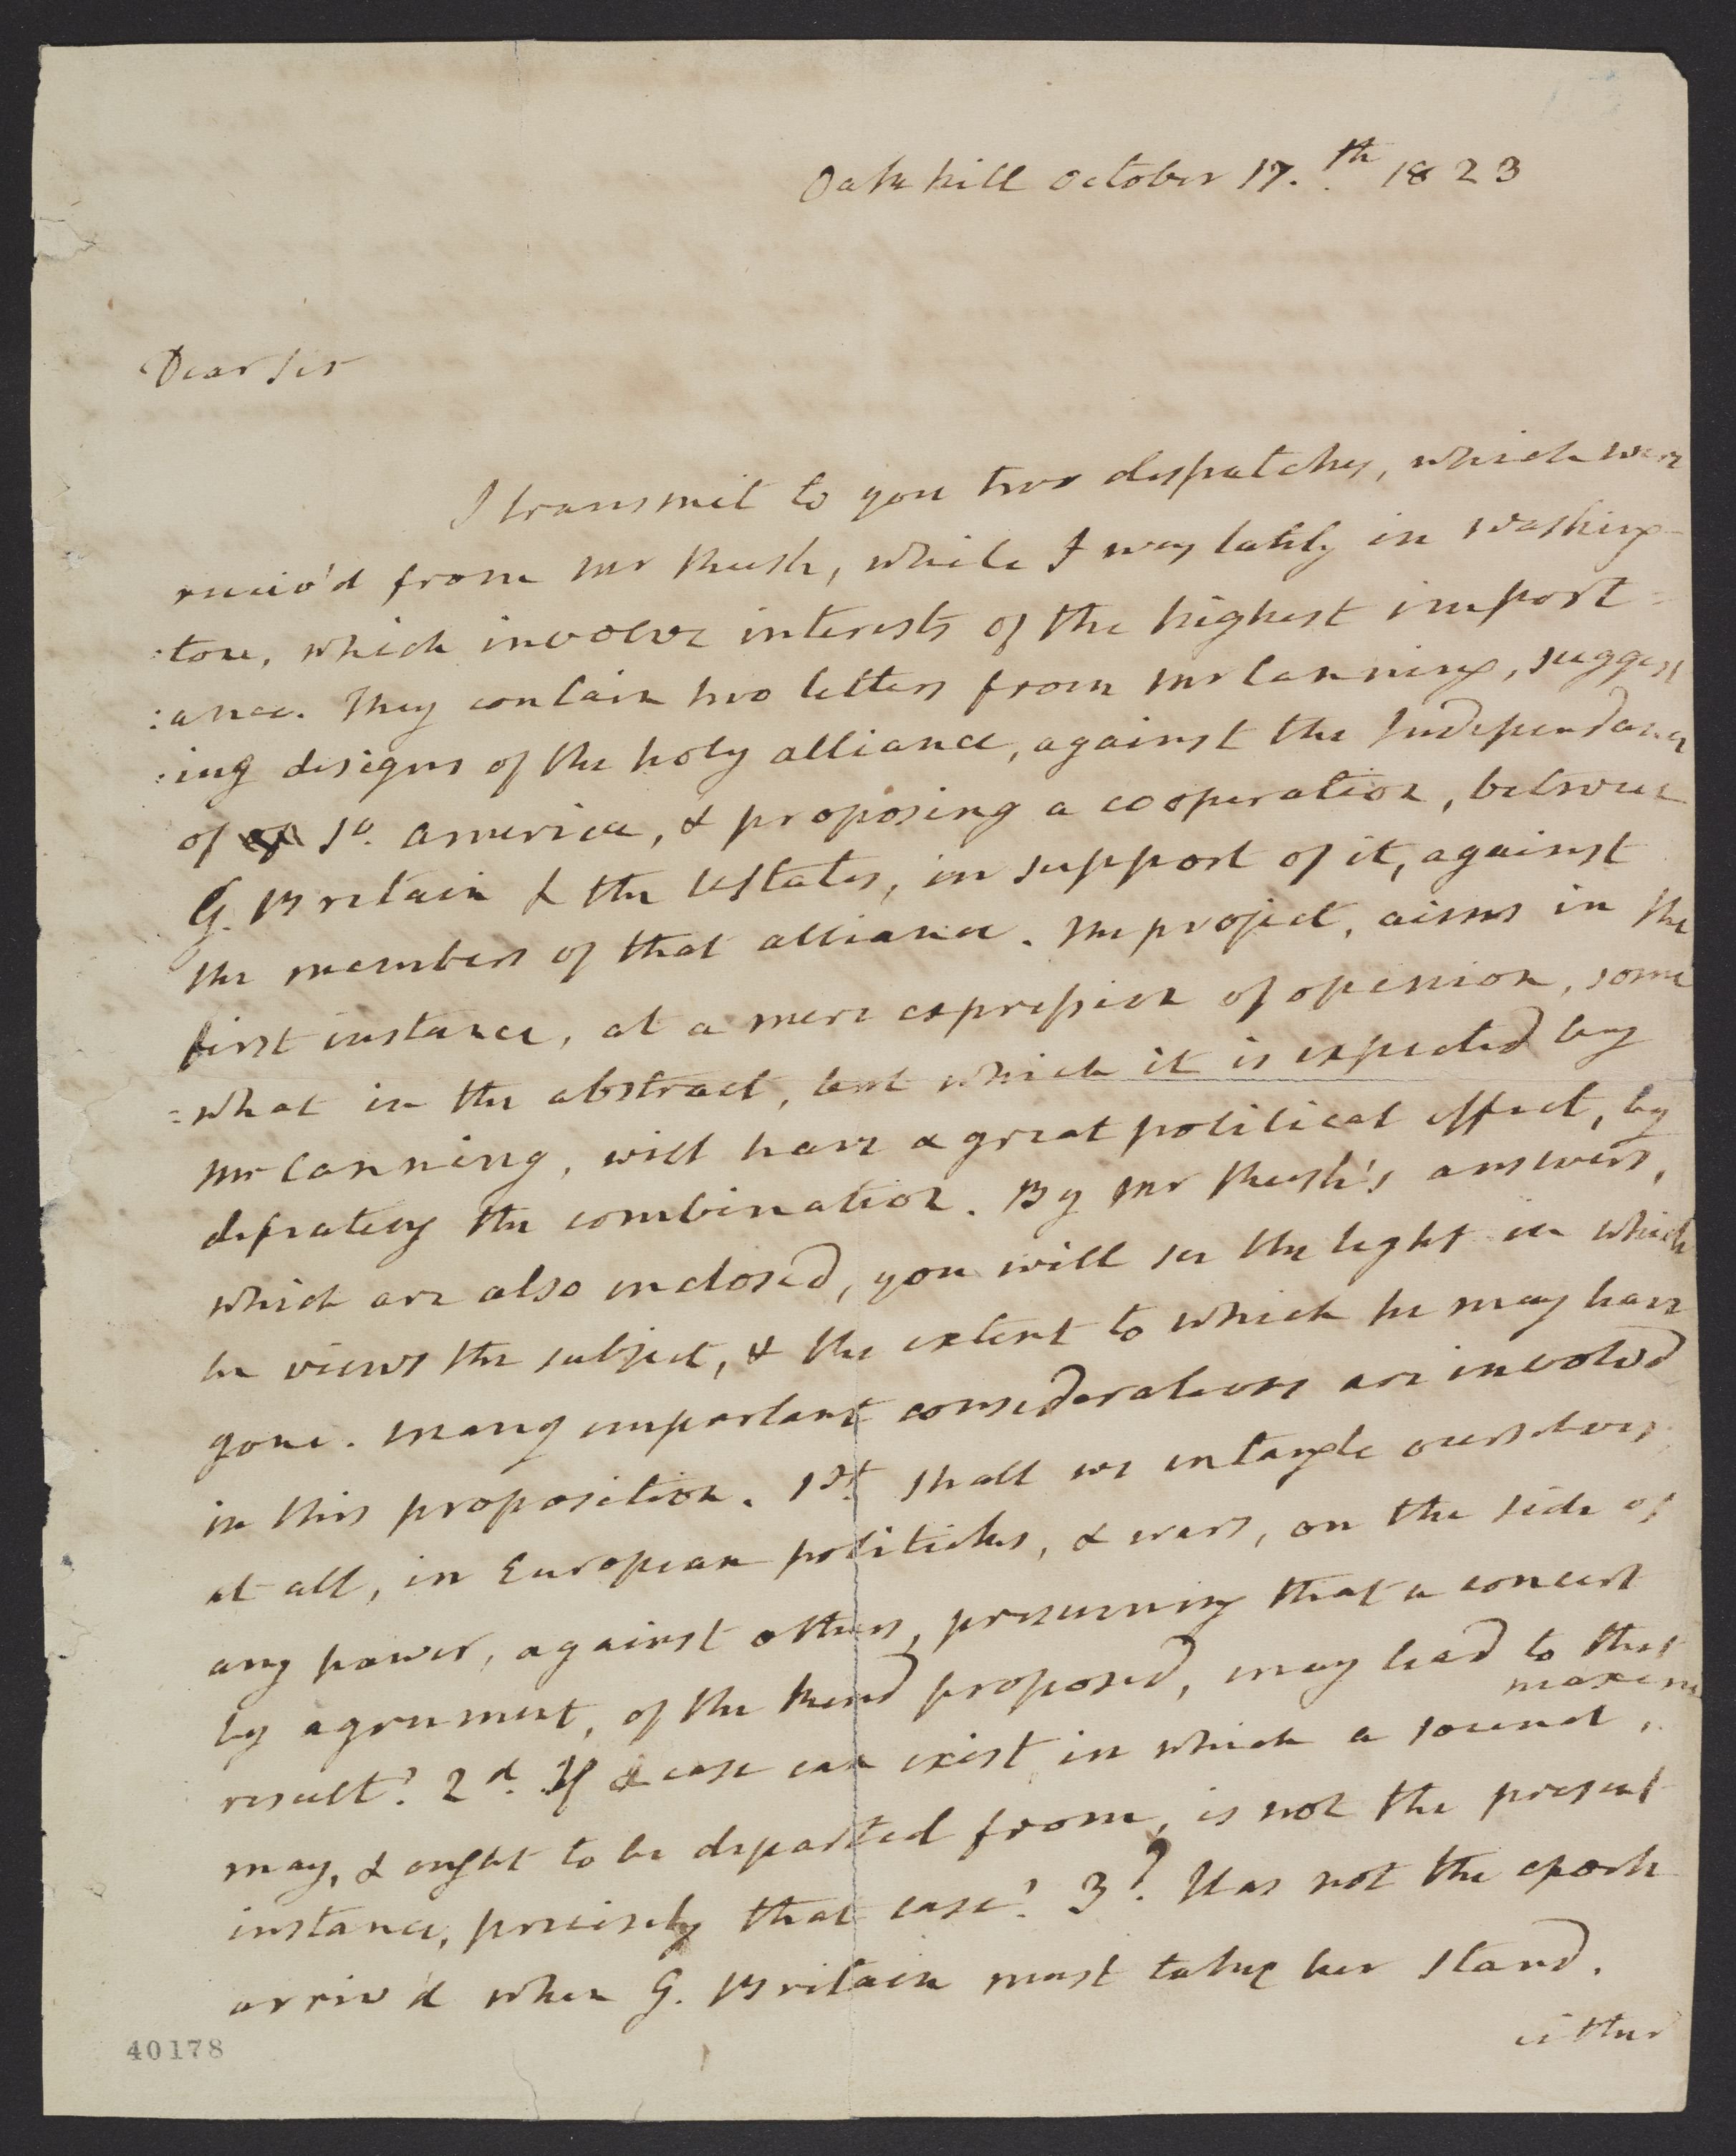 Oakhill October 17.th 1823
Dear Sir
I transmit to you two despatches, which were
receiv'd from Mr Rush, while I was lately in Washing-
:ton, which involve interests of the highest import=
:ance. They contain two letters from Mr Canning, suggest
:ing designs of the holy alliance, against the Independance
of So. America, & proposing a cooperation, between
G. Britain & the UStates, in support of it, against
the members of that alliance. The project, aims in the
first instance, at a mere expression of opinion, some
=what in the abstract, but which it is expected by
Mr Canning, will have a great political effect, by
defeating the combination. By Mr Rush's answers,
which are also enclosed, you will see the light in which
he views the subject, & the extent to which he may have
gone. Many important considerations are involved
in this proposition. 1st Shall we entangle ourselves,
at all, in European politicks, & wars, on the side of
any power, against others, presuming that a concert
by agreement, of the kind proposed, may lead to that
result? 2d. If a case can exist in which a sound maxim
may, & ought to be departed from, is not the present
instance, precisely that case? 3d. Has not the epoch
arriv'd when G. Britain must take her stand,
either
40178